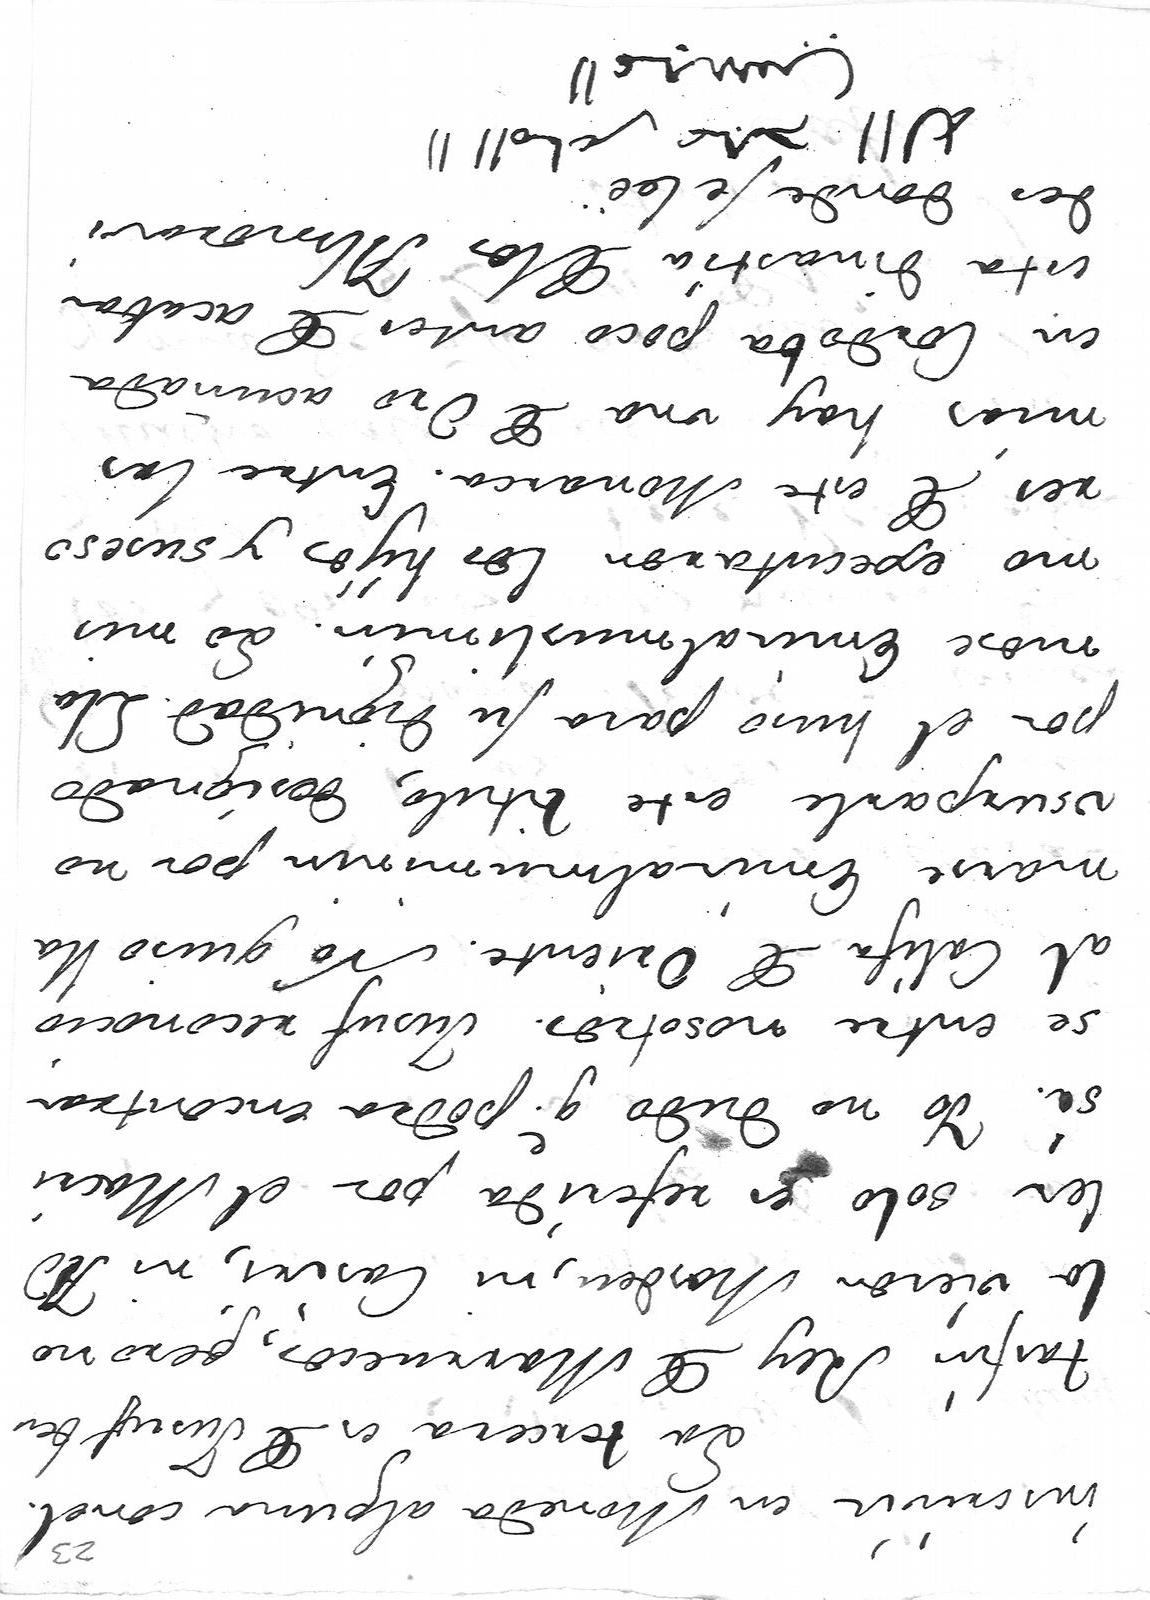 23
inscrivir en Moneda alguna con el.
La tercera es de Jusuf ben
tasfin Rey de Marruecos, pero no
la vieron Marsden, ni Casiri, ni Ad
ler solo es referida por el Macri
si. Yo no dudo q.e podra encontrar
se entre nosotros. Jusuf reconocio
al Califa de Oriente. No quiso lla
marse Emiralmuminin por no
usurparle este titulo, designado
por el huso para su dignidad. Lla
mose Emiralmuslimin. Lo mis
mo executaron los hijos, y suseso
res, de este Monarca. Entre las
mias, hay una de Oro acuñada
en Cordoba poco antes de acabar
esta Dinastia de los Almoravi
des donde se lee